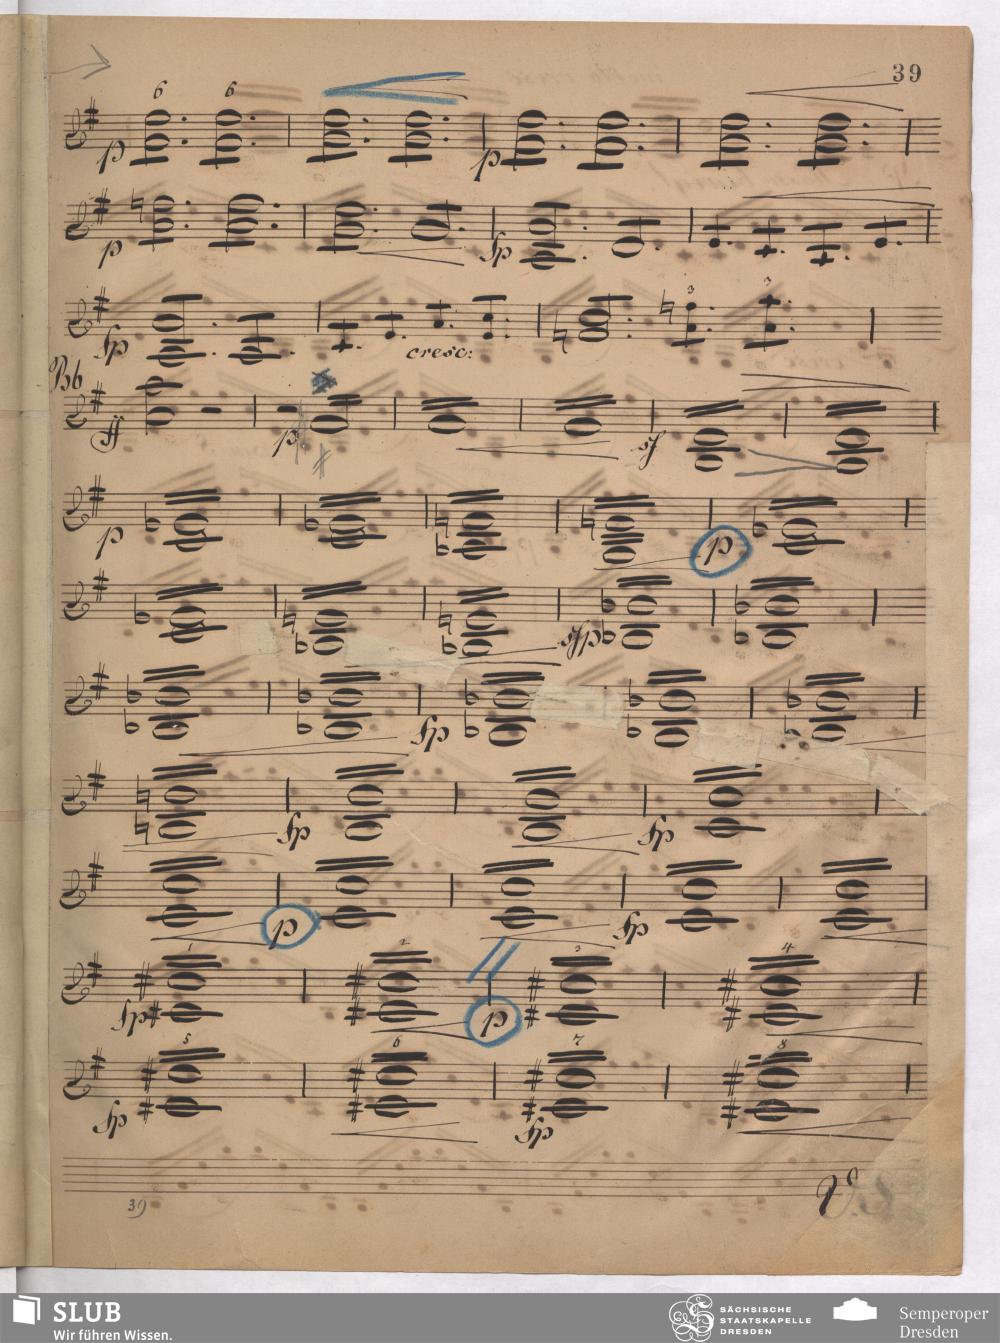 39
6 6
p p
p fp
fp cresc: 3 3
Bb
ff p sf
p p
sfp
fp
fp fp
p fp
1 2 3 4
fp p
5 6 7 8
fp fp
39 V.S.
SLUB
Wir führen Wissen.
SÄCHSISCHE
STAATSKAPELLE
DRESDEN
Semperoper
Dresden